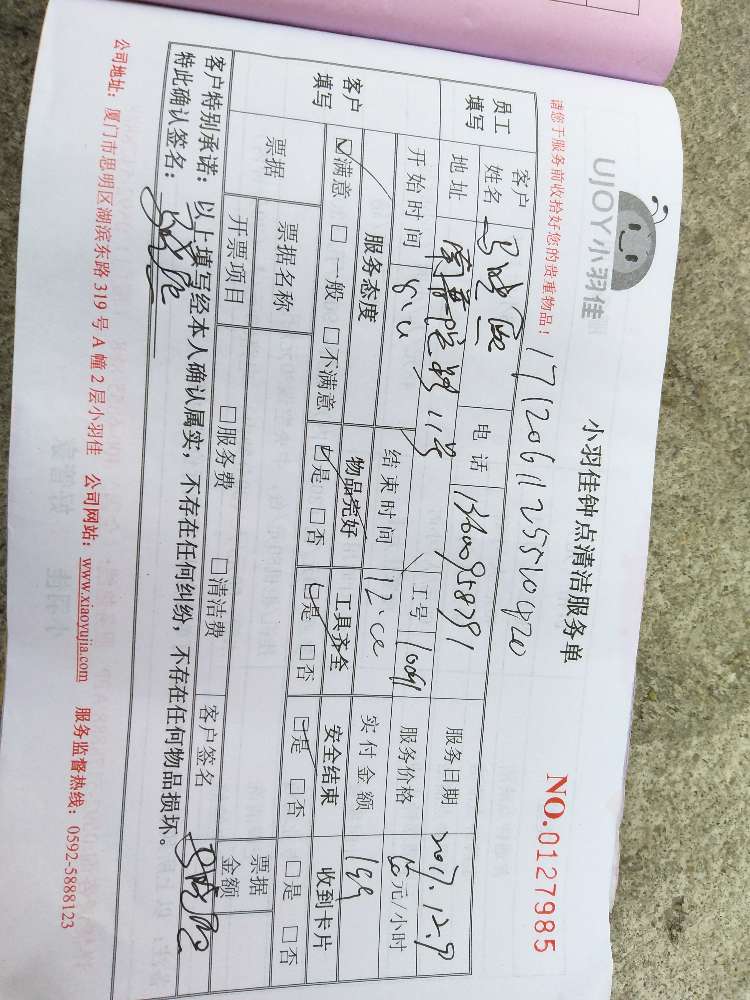 UJOY小羽佳
小羽佳钟点清洁服务单
NO.0127985
请您于服务前收拾好您的贵重物品！
17120611255510420
员工填写 客户姓名 电话 13600958791 服务日期 2017.12.9
地址 11号 工号 服务价格 元/小时
开始时间 结束时间 12:00 实付金额 199
客户填写 服务态度 物品完好 工具齐全 安全结束 收到卡片
☑满意 □一般 □不满意 ☑是 □否 ☑是 □否 ☑是 □否 □是 □否
票据 票据名称 票据金额
开票项目 □服务费 □清洁费 客户签名
客户特别承诺：以上填写经本人确认属实，不存在任何纠纷，不存在任何物品损坏。
特此确认签名：
公司地址：厦门市思明区湖滨东路319号A幢2层小羽佳 公司网站：www.xiaoyujia.com 服务监督热线：0592-5888123